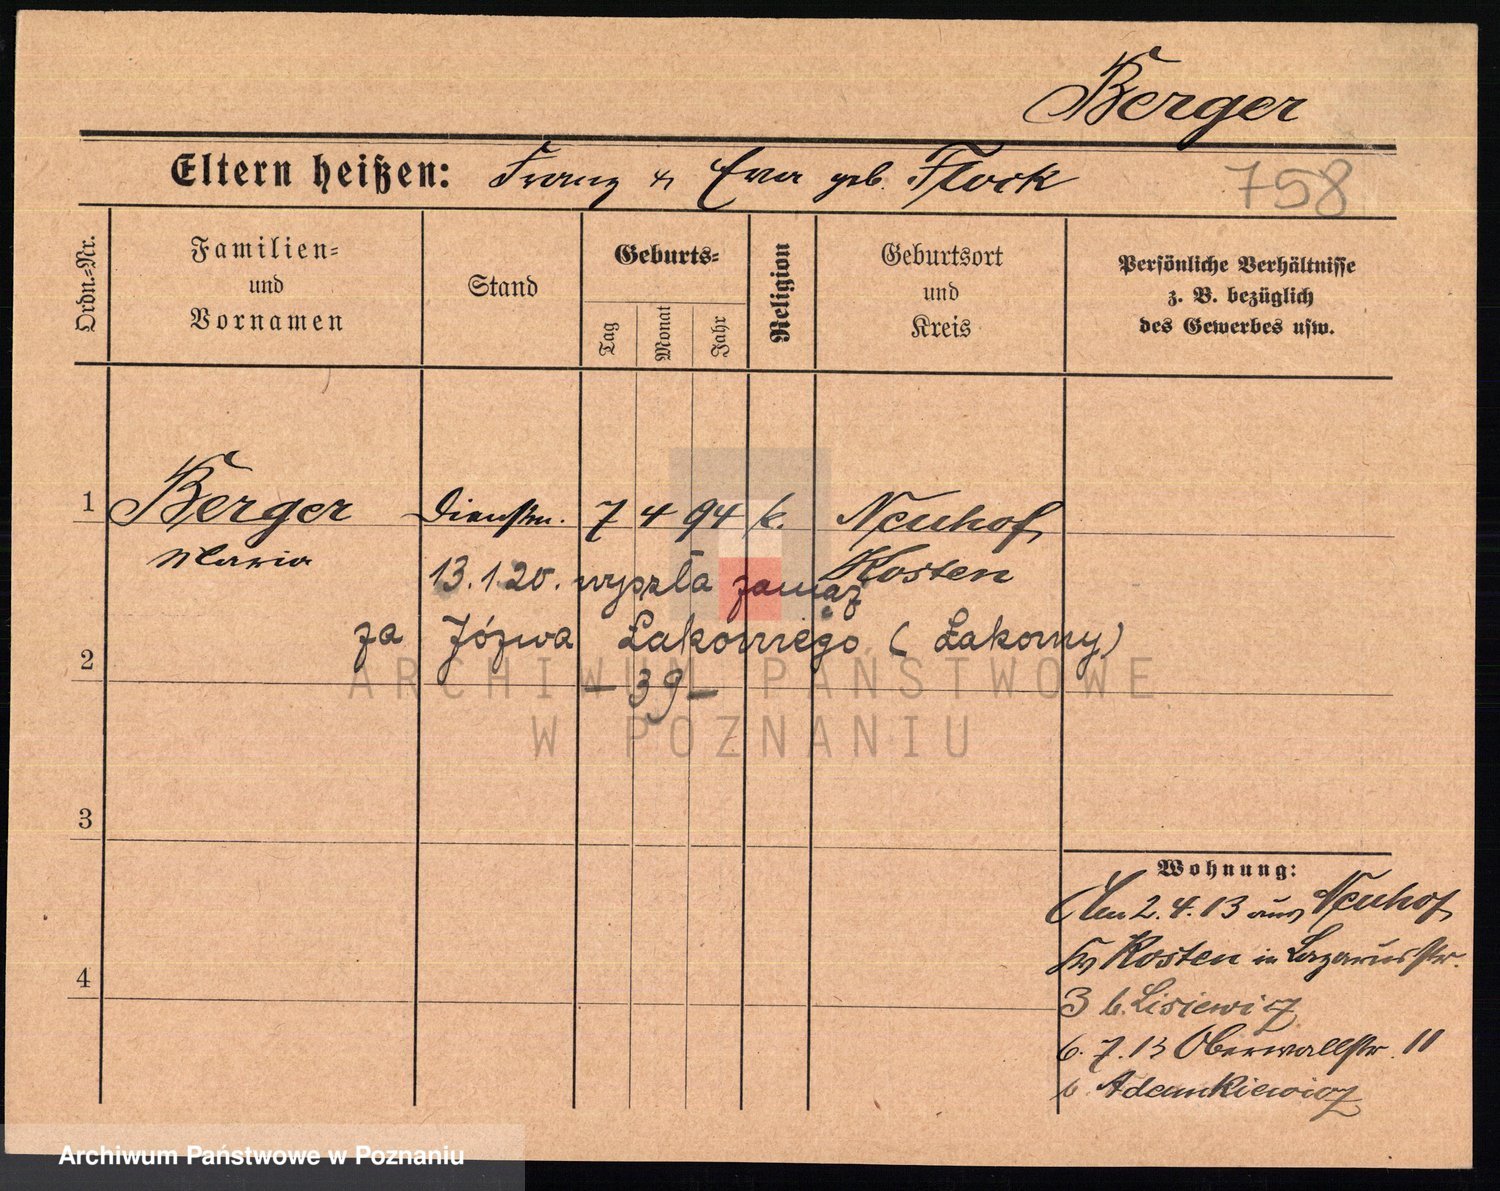 Berger
Eltern heißen: Franz u Eva geb. Flock
758
Ordn.-Nr.
Familien-
und
Vornamen
Stand
Geburts-
Tag
Monat
Jahr
Religion
Geburtsort
und
Kreis
Persönliche Verhältnisse
z. B. bezüglich
des Gewerbes usw.
1 Berger Dienstm. 7 4 94 k. Neuhof
Maria
Kosten
13.1.20. wyszła zamąż
za Józwa Łakomego (Łakomy)
2
– 39 –
ARCHIWUM PAŃSTWOWE
W POZNANIU
3
Wohnung:
Am 2.4.13 aus Neuhof
Kr Kosten in Lazarusstr.
3 b. Lisiewicz
4
6.7.13 Oberwallstr. 11
b. Adamkiewicz
Archiwum Państwowe w Poznaniu